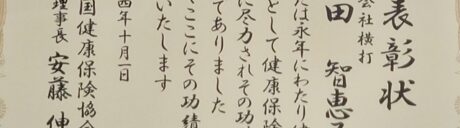 表彰状
会社横打
田 智恵子
たは永年にわたりは
として健康保険
に尽力されその功
でありました
ここにその功績
いたします
四年十月一日
国健康保険協会
理事長 安藤 伸